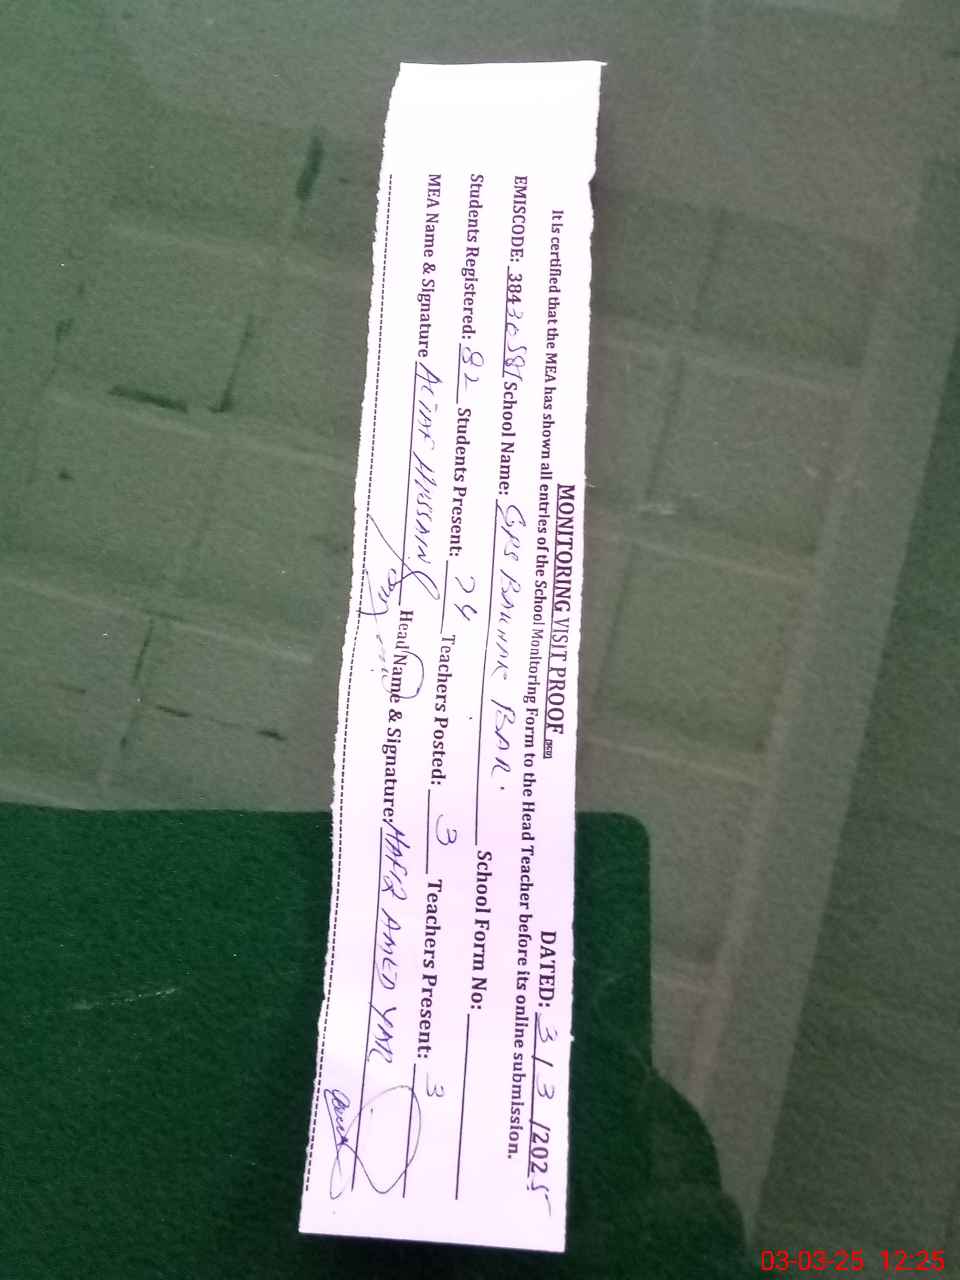 MONITORING VISIT PROOF DATED: 3/3/2025
It is certified that the MEA has shown all entries of the School Monitoring Form to the Head Teacher before its online submission.
EMISCODE: School Name: GPS BAR. School Form No:
Students Registered: 82 Students Present: 74 Teachers Posted: 3 Teachers Present: 3
MEA Name & Signature HUSSAIN Head Name & Signature: YAR
03-03-25 12:25